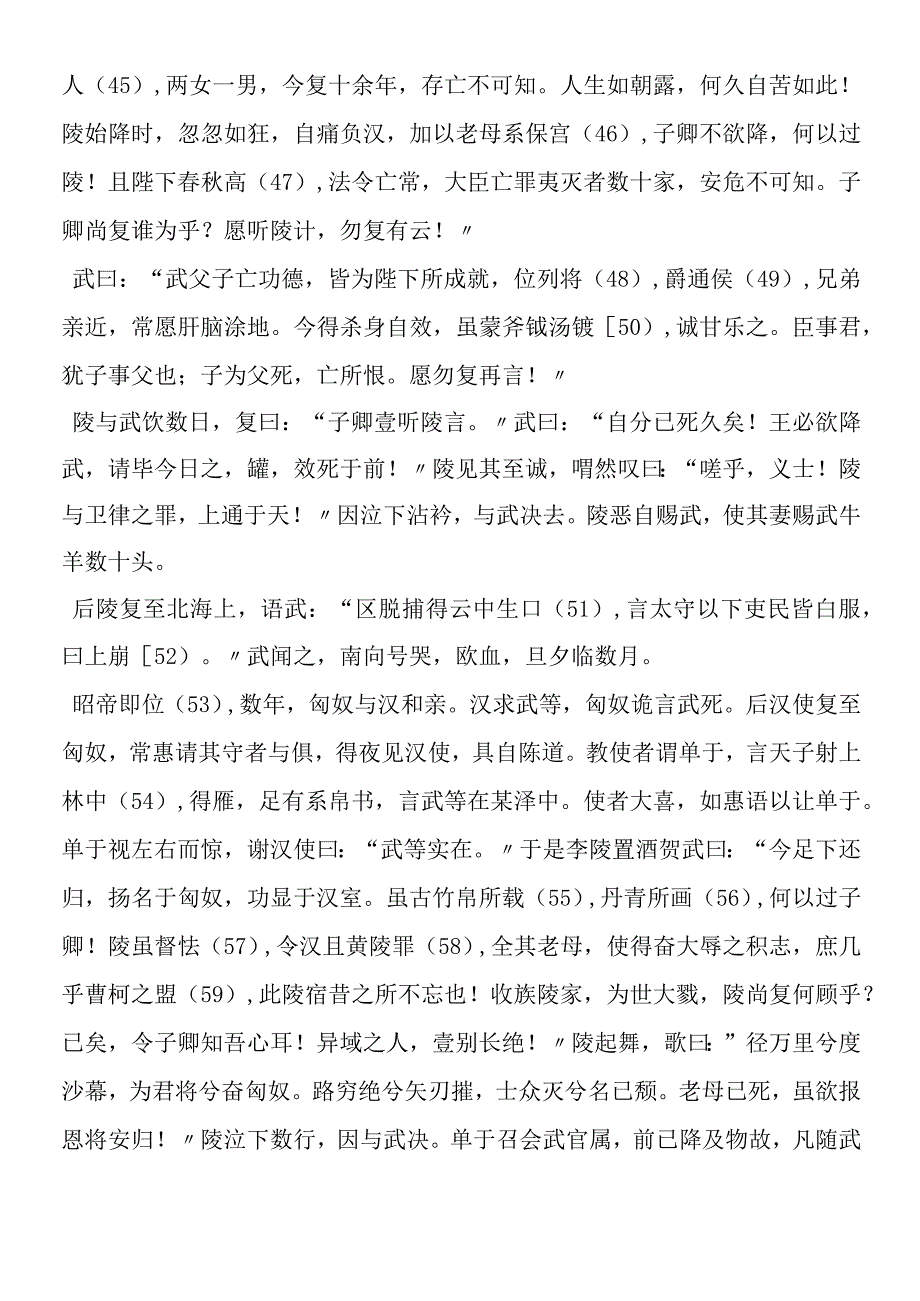 人（45）,两女一男，今复十余年，存亡不可知。人生如朝露，何久自苦如此！
陵始降时，忽忽如狂，自痛负汉，加以老母系保宫（46）,子卿不欲降，何以过
陵！且陛下春秋高（47）,法令亡常，大臣亡罪夷灭者数十家，安危不可知。子
卿尚复谁为乎？愿听陵计，勿复有云！〃
武曰：“武父子亡功德，皆为陛下所成就，位列将（48）,爵通侯（49）,兄弟
亲近，常愿肝脑涂地。今得杀身自效，虽蒙斧钺汤镀［50）,诚甘乐之。臣事君，
犹子事父也；子为父死，亡所恨。愿勿复再言！〃
陵与武饮数日，复曰：“子卿壹听陵言。〃武曰：“自分已死久矣！王必欲降
武，请毕今日之，罐，效死于前！〃陵见其至诚，喟然叹曰：“嗟乎，义士！陵
与卫律之罪，上通于天！〃因泣下沾衿，与武决去。陵恶自赐武，使其妻赐武牛
羊数十头。
后陵复至北海上，语武：“区脱捕得云中生口（51）,言太守以下吏民皆白服，
曰上崩［52）。〃武闻之，南向号哭，欧血，旦夕临数月。
昭帝即位（53）,数年，匈奴与汉和亲。汉求武等，匈奴诡言武死。后汉使复至
匈奴，常惠请其守者与俱，得夜见汉使，具自陈道。教使者谓单于，言天子射上
林中（54）,得雁，足有系帛书，言武等在某泽中。使者大喜，如惠语以让单于。
单于视左右而惊，谢汉使曰：“武等实在。〃于是李陵置酒贺武曰：“今足下还
归，扬名于匈奴，功显于汉室。虽古竹帛所载（55）,丹青所画（56）,何以过子
卿！陵虽督怯（57）,令汉且黄陵罪（58）,全其老母，使得奋大辱之积志，庶几
乎曹柯之盟（59）,此陵宿昔之所不忘也！收族陵家，为世大戮，陵尚复何顾乎？
已矣，令子卿知吾心耳！异域之人，壹别长绝！〃陵起舞，歌曰：”径万里兮度
沙幕，为君将兮奋匈奴。路穷绝兮矢刃摧，士众灭兮名已颓。老母已死，虽欲报
恩将安归！〃陵泣下数行，因与武决。单于召会武官属，前已降及物故，凡随武